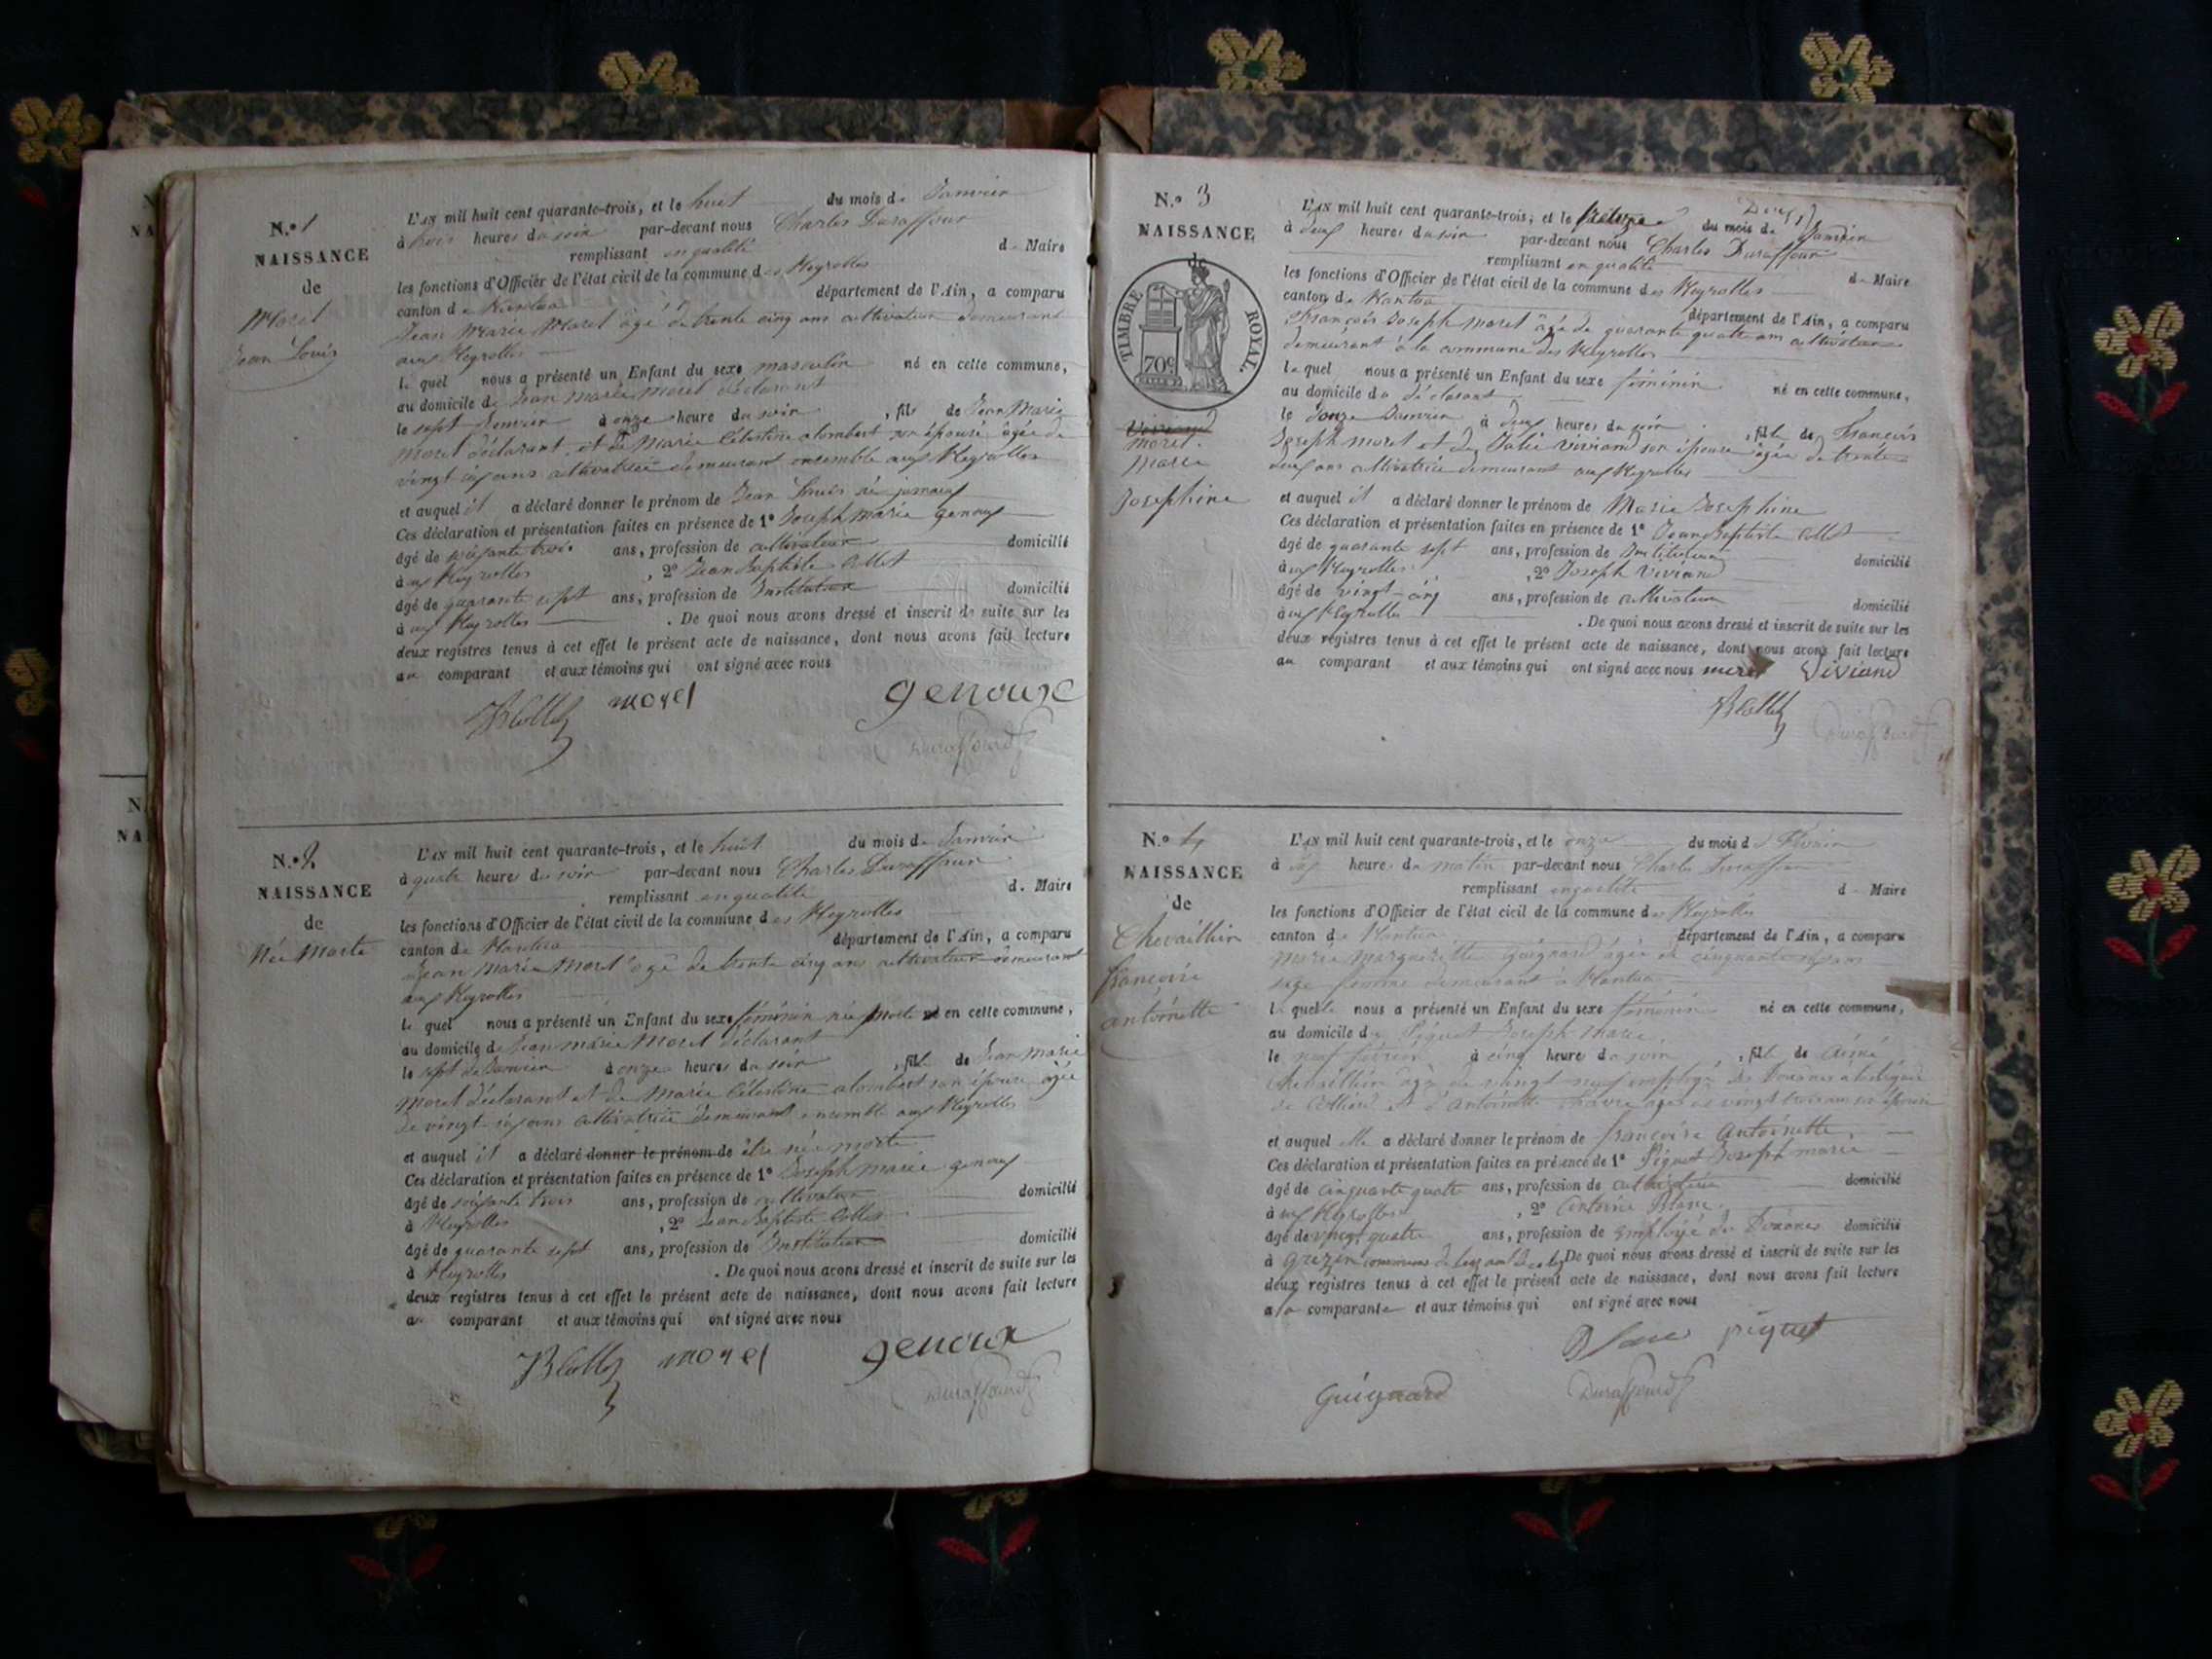 N.º 1
NAISSANCE
de
Morel
Jean Louis
L'an mil huit cent quarante-trois, et le huit du mois de Janvier
à trois heures du soir par-devant nous Charles Duraffour
remplissant en qualité de Maire
les fonctions d'Officier de l'état civil de la commune des Neyrolles
canton de Nantua département de l'Ain, a comparu
Jean Marie Morel âgé de trente cinq ans cultivateur demeurant
aux Neyrolles
lequel nous a présenté un Enfant du sexe masculin né en cette commune,
au domicile de Jean Marie Morel déclarant
le sept Janvier à onze heure du soir, fils de Jean Marie
Morel déclarant, et de Marie Célestine alombert son épouse âgée de
vingt six ans cultivatrice demeurant ensemble aux Neyrolles
et auquel il a déclaré donner le prénom de Jean Louis né jumeaux
Ces déclaration et présentation faites en présence de 1º Joseph Marie genoux
âgé de soixante trois ans, profession de cultivateur domicilié
à aux Neyrolles, 2º Jean Baptiste Collet
âgé de quarante sept ans, profession de Instituteur domicilié
à aux Neyrolles. De quoi nous avons dressé et inscrit de suite sur les
deux registres tenus à cet effet le présent acte de naissance, dont nous avons fait lecture
au comparant et aux témoins qui ont signé avec nous
JBCollet morel genoux
Duraffourd
N.º 2
NAISSANCE
de
Née Morte
L'an mil huit cent quarante-trois, et le huit du mois de Janvier
à quatre heures du soir par-devant nous Charles Duraffour
remplissant en qualité de Maire
les fonctions d'Officier de l'état civil de la commune des Neyrolles
canton de Nantua département de l'Ain, a comparu
Jean Marie Morel âgé de trente cinq ans cultivateur demeurant
aux Neyrolles
lequel nous a présenté un Enfant du sexe féminin née morte né en cette commune,
au domicile de Jean Marie Morel déclarant
le sept de Janvier à onze heures du soir, fille de Jean Marie
Morel déclarant et de Marie Célestine alombert son épouse âgée
de vingt six ans cultivatrice demeurant ensemble aux Neyrolles
et auquel il a déclaré donner le prénom de être née morte
Ces déclaration et présentation faites en présence de 1º Joseph Marie genoux
âgé de soixante trois ans, profession de cultivateur domicilié
à Neyrolles, 2º Jean Baptiste Collet
âgé de quarante sept ans, profession de Instituteur domicilié
à Neyrolles. De quoi nous avons dressé et inscrit de suite sur les
deux registres tenus à cet effet le présent acte de naissance, dont nous avons fait lecture
au comparant et aux témoins qui ont signé avec nous
JBCollet morel genoux
Duraffourd
N.º 3
NAISSANCE
de
TIMBRE ROYAL.
70c
Viviand
Morel.
Marie
Josephine
L'an mil huit cent quarante-trois, et le treize du mois de Janvier
à deux heures du soir par-devant nous Charles Duraffour
remplissant en qualité de Maire
les fonctions d'Officier de l'état civil de la commune des Neyrolles
canton de Nantua département de l'Ain, a comparu
François Joseph Morel âgé de quarante quatre ans cultivateur
demeurant à la commune des Neyrolles
lequel nous a présenté un Enfant du sexe féminin né en cette commune,
au domicile du déclarant
le douze Janvier à deux heures du soir, fille de François
Joseph Morel et de Julie Viviand son épouse âgée de trente
deux ans cultivatrice demeurant aux Neyrolles
et auquel il a déclaré donner le prénom de Marie Josephine
Ces déclaration et présentation faites en présence de 1º Jean Baptiste Collet
âgé de quarante sept ans, profession de Instituteur domicilié
à aux Neyrolles, 2º Joseph Viviand
âgé de vingt-cinq ans, profession de cultivateur domicilié
à aux Neyrolles. De quoi nous avons dressé et inscrit de suite sur les
deux registres tenus à cet effet le présent acte de naissance, dont nous avons fait lecture
au comparant et aux témoins qui ont signé avec nous morel Viviand
JBCollet Duraffourd
N.º 4
NAISSANCE
de
Chevaillier
françoise
antoinette
L'an mil huit cent quarante-trois, et le onze du mois de Février
à six heures du matin par-devant nous Charles Duraffour
remplissant en qualité de Maire
les fonctions d'Officier de l'état civil de la commune des Neyrolles
canton de Nantua département de l'Ain, a comparu
Marie Marguerite Guignard âgée de cinquante six ans
sage femme demeurant à Nantua
laquelle nous a présenté un Enfant du sexe féminin né en cette commune,
au domicile de Piquet Joseph Marie,
le neuf février à cinq heure du soir, fille de Aimé
Chevaillier âgé de vingt neuf employé des Douanes
et d'Antoinette âgée de vingt trois ans son épouse
et auquel elle a déclaré donner le prénom de françoise Antoinette.
Ces déclaration et présentation faites en présence de 1º Piquet Joseph marie
âgé de cinquante quatre ans, profession de cultivateur domicilié
à aux Neyrolles, 2º Antoine Blanc.
âgé de vingt quatre ans, profession de Employé des Douanes domicilié
à Grezin commune de De quoi nous avons dressé et inscrit de suite sur les
deux registres tenus à cet effet le présent acte de naissance, dont nous avons fait lecture
à la comparante et aux témoins qui ont signé avec nous
Blanc piquet
Guignard Duraffourd